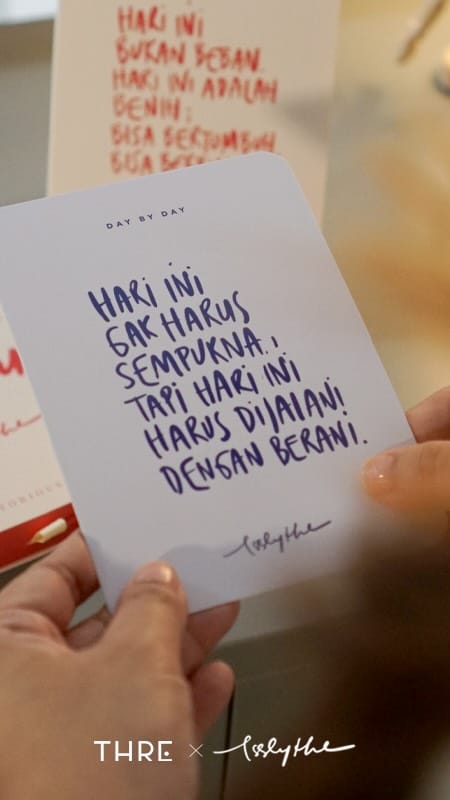 HARI INI
BUKAN BEBAN.
HARI INI ADALAH
BENIH:
BISA BERTUMBUH
BISA
DAY BY DAY
HARI INI
GAK HARUS
SEMPURNA.,
TAPI HARI INI
HARUS DIJALANI
DENGAN BERANI.
THRE ×